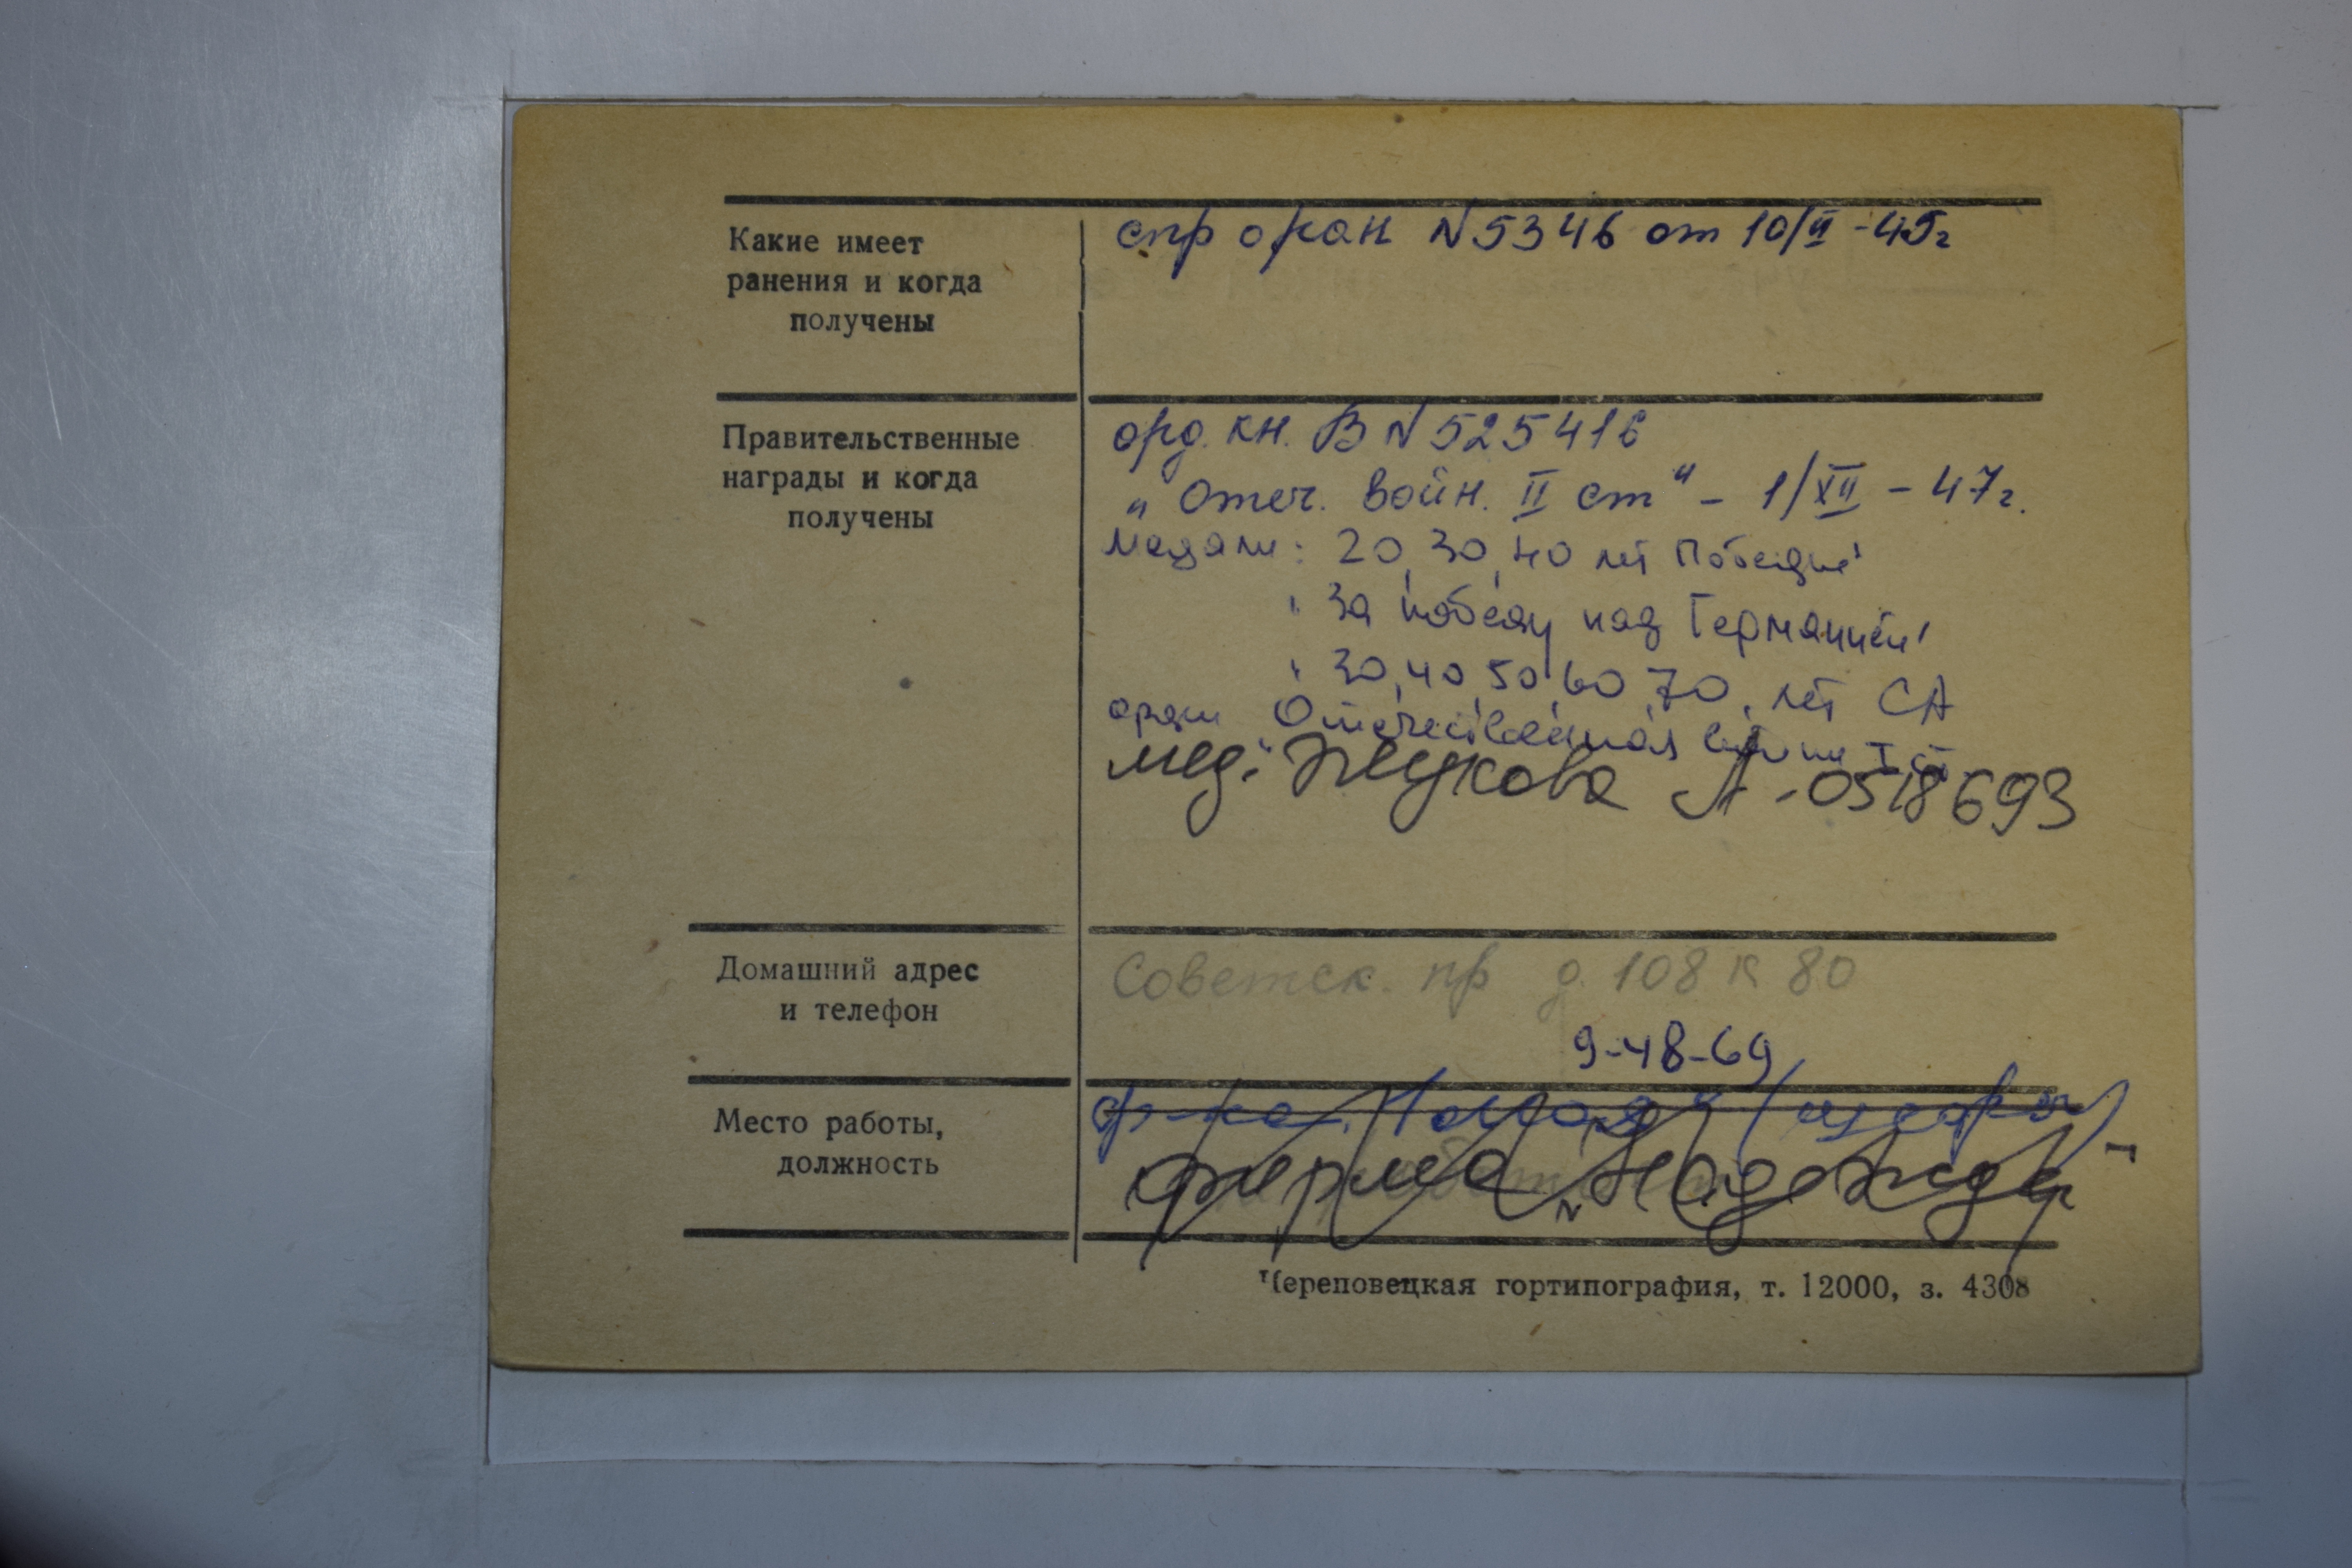 Какие имеет
ранения и когда
получены
спр о ран N 5346 от 10/VI - 45г
Правительственные
награды и когда
получены
орд. кн. В N 525416
„Отеч. войн. II ст" - 1/XII - 47г.
Медали: 20, 30, 40 лет Победы'
' За победу над Германией'
' 30, 40, 50, 60, 70, лет СА
орден Отечественная войны I ст
мед. Жукова А - 0518693
Домашний адрес
и телефон
Советск. пр д. 108 к 80
9-48-69
Место работы,
должность
ф-ка
фирма „Надежда"
Череповецкая гортипография, т. 12000, з. 4308